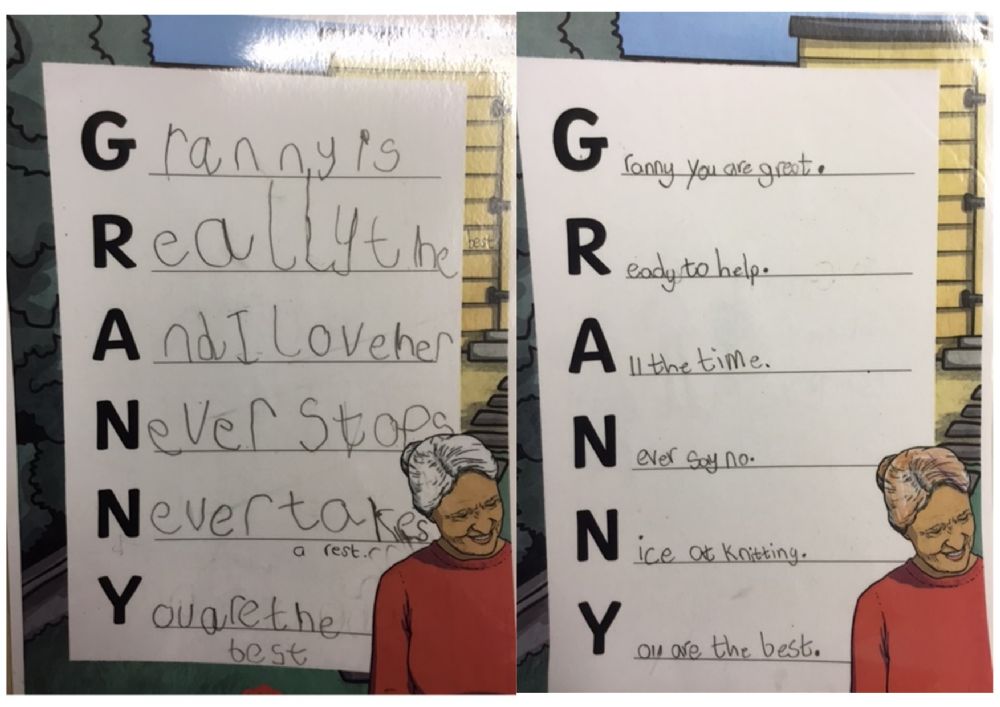 Granny is
Really the
best
And I Love her
Never Stops
Never takes
a rest.
You are the
best
Granny you are great.
Ready to help.
All the time.
Never say no.
Nice at knitting.
You are the best.